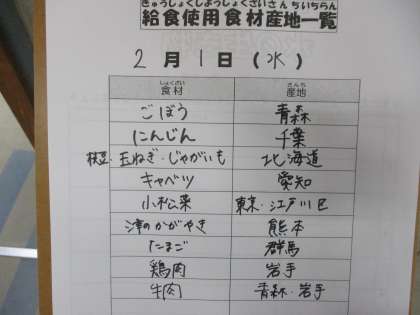 きゅうしょくしようしょくざいさんちいちらん
給食使用食材産地一覧
2月1日(水)
しょくざい さんち
食材 産地
ごぼう 青森
にんじん 千葉
枝豆・玉ねぎ・じゃがいも 北海道
キャベツ 愛知
小松菜 東京・江戸川区
津のかがやき 熊本
たまご 群馬
鶏肉 岩手
牛肉 青森・岩手